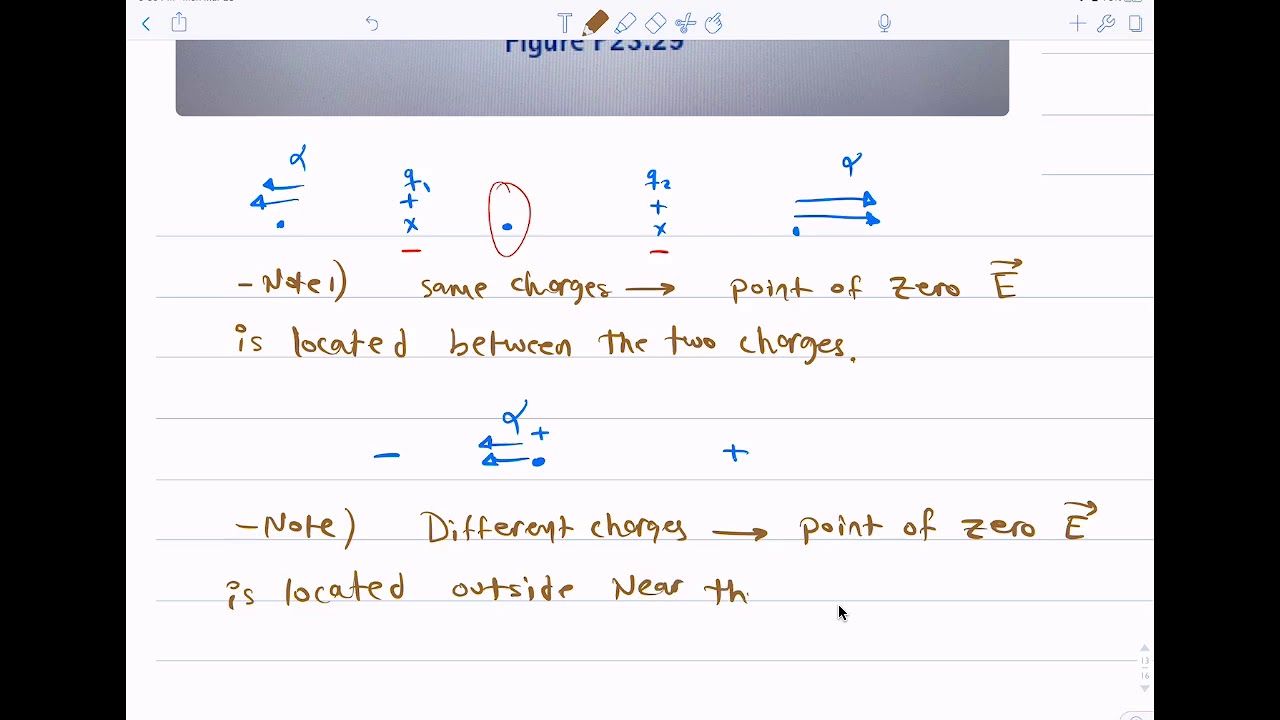 Figure P23.29
α α
q₁ q₂
+ +
x x
- Note 1) same charges → point of zero E⃗
is located between the two charges.
α
+
- +
- Note) Different charges → point of zero E⃗
is located outside Near th
13
16